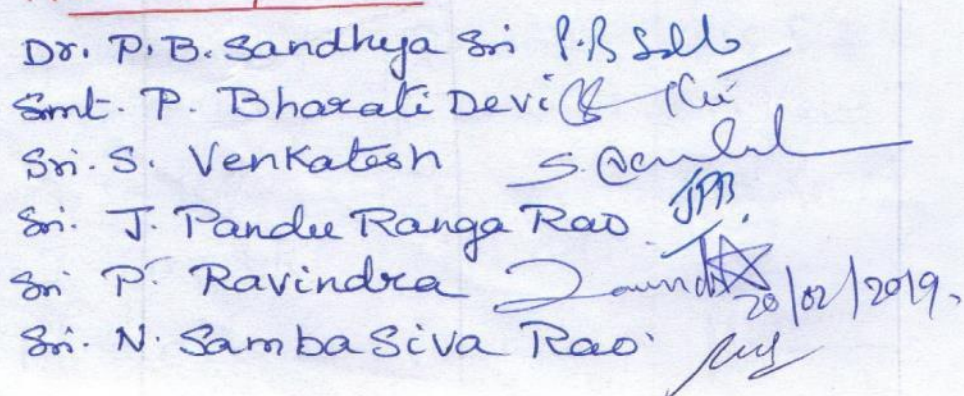 Dr. P.B. Sandhya Sri P.B
Smt. P. Bharati Devi
Sri. S. Venkatesh S.
Sri. J. Pandu Ranga Rao JPR
Sri P. Ravindra 20/02/2019.
Sri. N. SambaSiva Rao.